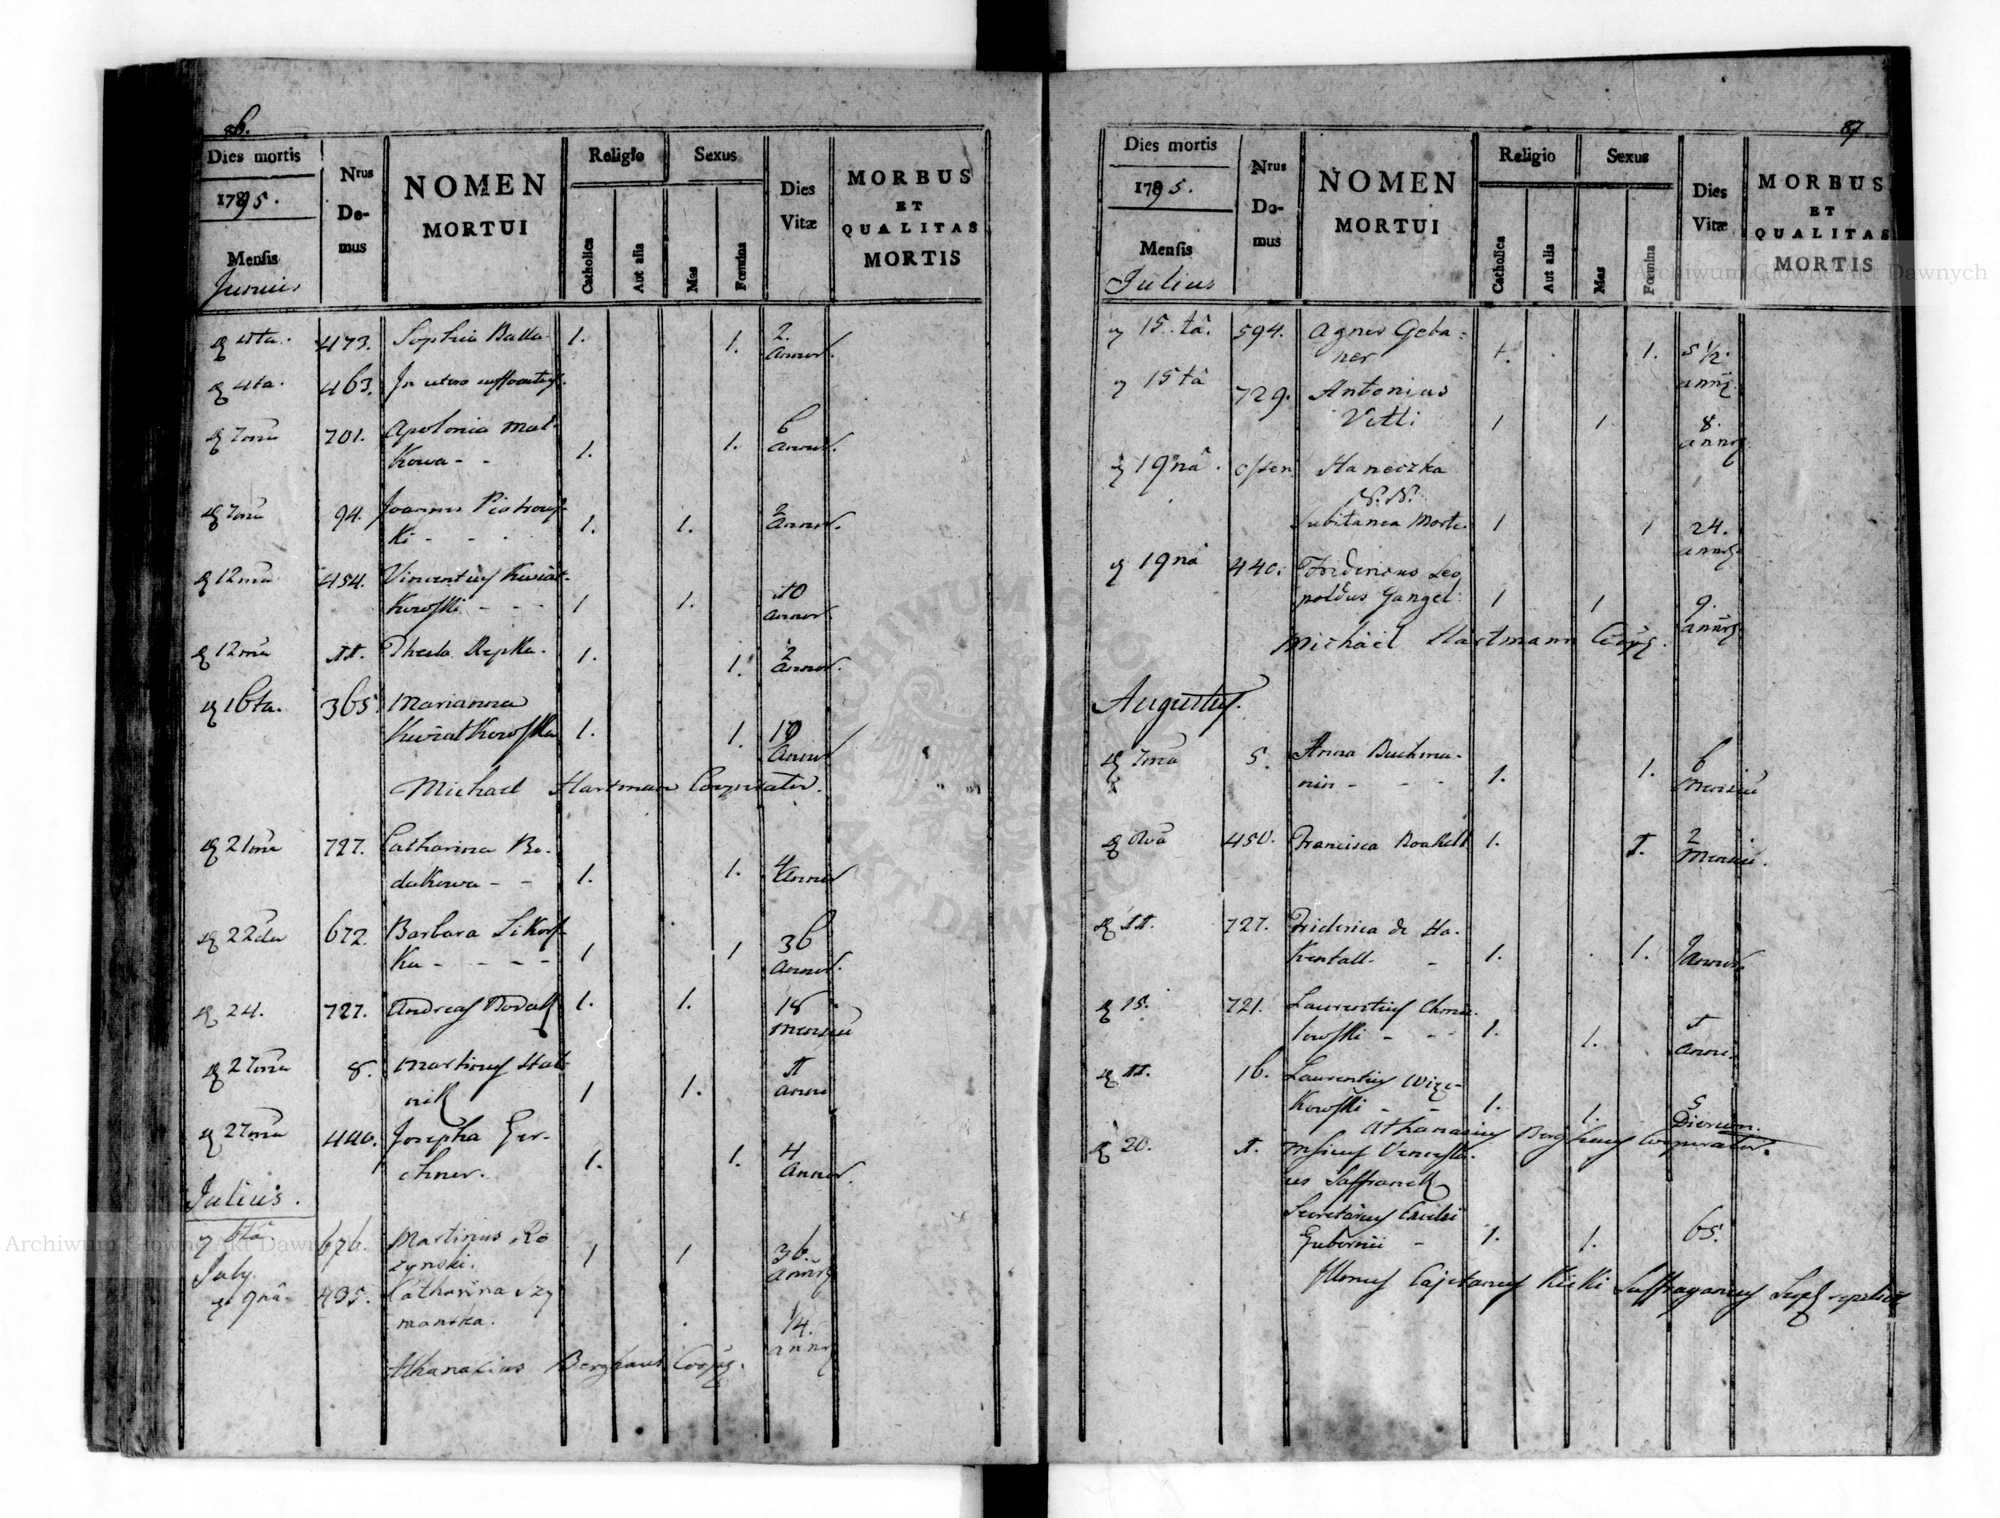 86.
Dies mortis
1795.
Mensis
Junius
Nrus
Do-
mus
NOMEN
MORTUI
Religio
Catholica
Aut alia
Sexus
Mas
Fœmina
Dies
Vitæ
MORBUS
ET
QUALITAS
MORTIS
4ta. 473. Sophia Balla- 1. 1. 2.
annor.
4ta. 463. In utero
7ma 701. Apolonia Mal- 6
kowa - - 1. 1. annor.
7ma 94. Joannes Piotrows- 2
ki - - 1. 1. annor.
12ma 454. Vincentius Kwiat-
kowski - - - 1 1. 10
annor.
12ma 11. Thecla Repka. 1. 1. 2
annor.
16ta. 365. Marianna
Kwiatkowska 1. 1. 10
annor
Michael Hartman Cooperator.
21ma 727. Catharina Bo-
dakowa - - 1. 1. 4
annor
22da 672. Barbara Sikors-
ka - - - - 1 1 36
annor.
24. 727. Andreas 1. 1. 18
mensiu
27ma 8. Martinus
nik 1 1. 1
anni
27ma 440. Josepha Ger-
chner. 1. 1. 4
annor.
Julius.
6tâ 676. Martinus Ro
July. zynski. 1 1 36.
annor
9nâ 435. Catharina Szy
manska. 14.
annor
Athanasius Berghaus Coop.
87.
Dies mortis
1795.
Mensis
Julius
Nrus
Do-
mus
NOMEN
MORTUI
Religio
Catholica
Aut alia
Sexus
Mas
Fœmina
Dies
Vitæ
MORBUS
ET
QUALITAS
MORTIS
15. tâ. 594. Agnes Geba-
ner 1. 1. 5 1/2.
annor
15tâ 729. Antonius
Vetti 1 1. 8.
annor
19nâ. Haneczka
N. N.
Subitanea Morte. 1 1 24.
annor
19nâ 440. Fridericus Leo
poldus Gangel. 1 1 9.
annor
Michäel Hartmann Coop.
Augustus.
7ma 5. Anna Buchma- 6
nin - - - 1. 1. mensiu
8va 450. Francisca 1. 1. 2
mensiu.
11. 727. Friderica de Ha-
kentall. - 1. 1. annor.
15. 721. Laurentius
lowski - - - 1. 1. 1
anni.
11. 16. Laurentius
kowski - - 1. 1. 5
Dierum.
Athanasius Berghaus Cooperator.
20. 1.
us Saffranek
Secretarius
Gubernii - 1. 1. 65.
Cajetanus Kicki Suffraganeus
Archiwum Główne Akt Dawnych
Archiwum Główne Akt Dawnych
ARCHIWUM GŁÓWNE AKT DAWNYCH